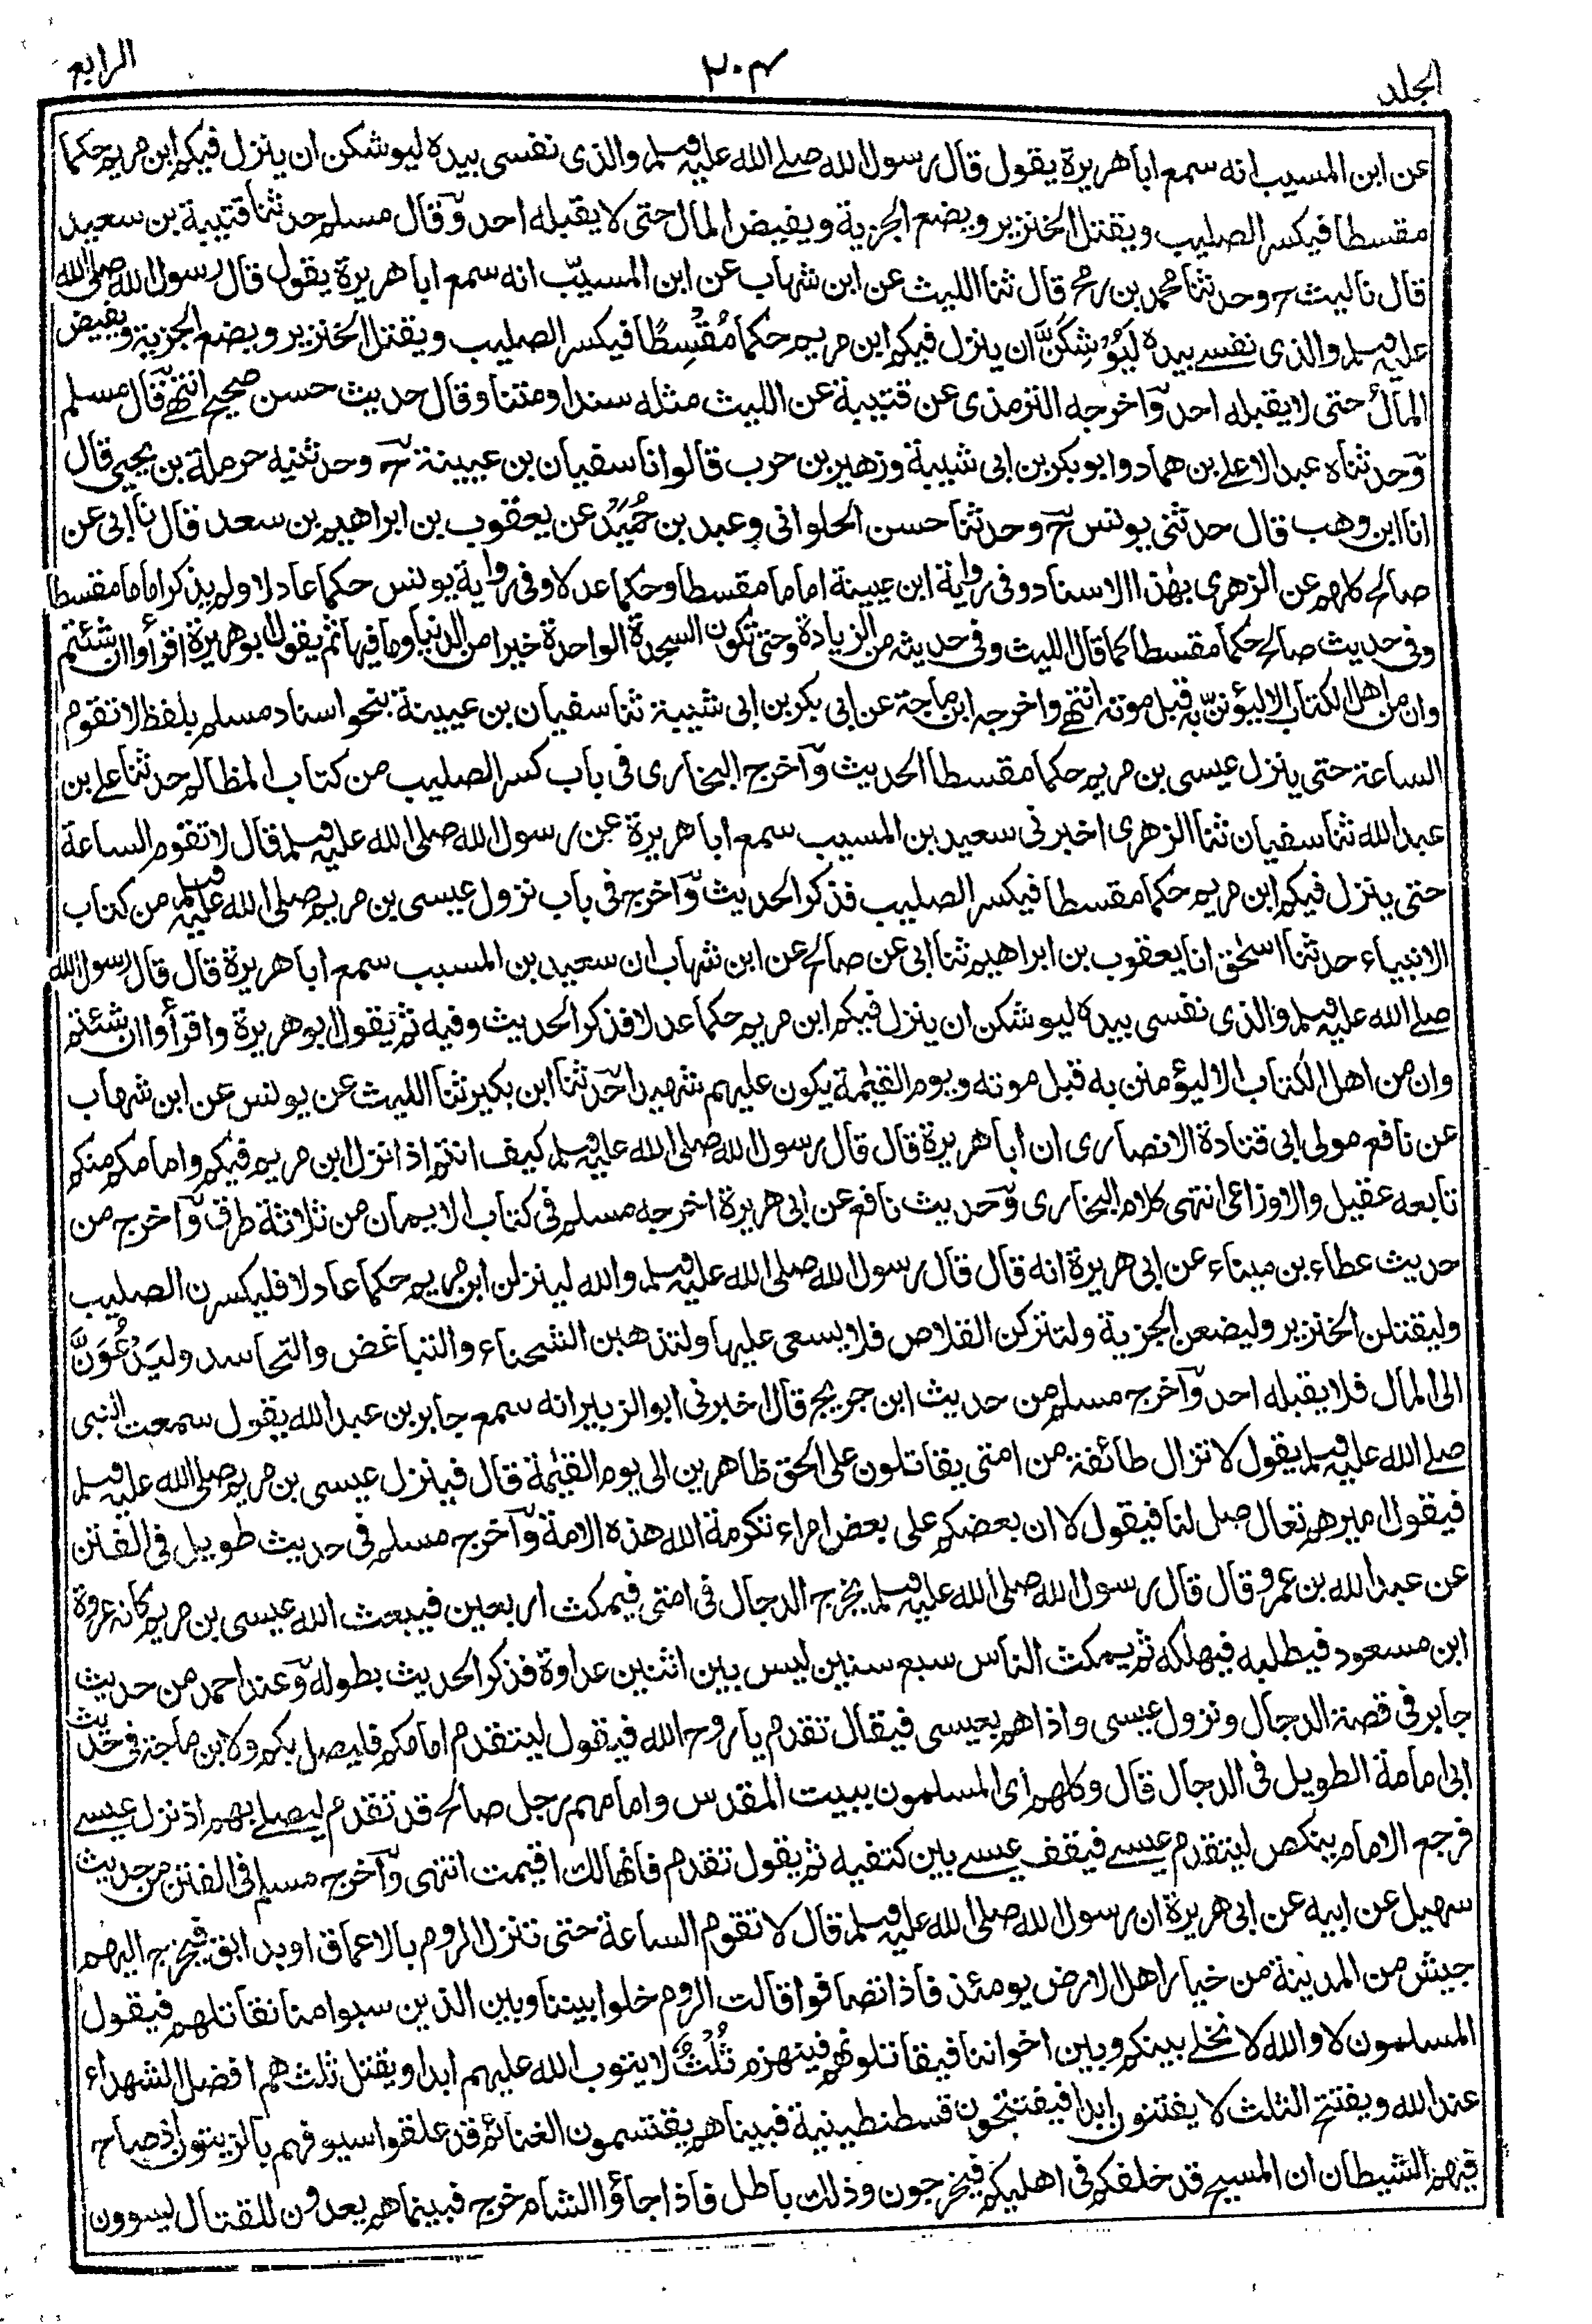 الجلد
٢٠٣
الرابع
عن ابن المسيب انه سمع ابا هريرة يقول قال رسول الله صلے الله عليه وسلم والذى نفسى بيده ليوشكن ان ينزل فيكم ابن مريم حكما
مقسطا فيكسر الصليب ويقتل الخنزير ويضع الجزية ويفيض المال حتى لا يقبله احد وقال مسلم حدثنا قتيبة بن سعيد
قال نا ليث ح وحدثنا محمد بن رمح قال ثنا الليث عن ابن شهاب عن ابن المسيّب انه سمع ابا هريرة يقول قال رسول الله صلى الله
عليه وسلم والذى نفسے بيده لَيُوْشِكَنَّ ان ينزل فيكم ابن مريم حكما مُقْسِطًا فيكسر الصليب ويقتل الخنزير ويضع الجزية ويفيض
المال حتى لا يقبله احد وآخرجه الترمذى عن قتيبة عن الليث مثله سندا ومتنا وقال حديث حسن صحيح انتهے قال مسلم
وحدثناه عبد الاعلے بن حماد وابو بكر بن ابى شيبة وزهير بن حرب قالوا نا سفيان بن عيينة ح وحدثنيه حرملة بن يحيى قال
انا ابن وهب قال حدثنى يونس ح وحدثنا حسن الحلوانى وعبد بن حُمَيْدٌ عن يعقوب بن ابراهيم بن سعد قال نا ابى عن
صالح كلهم عن الزهرى بهٰذا الاسناد وفى رواية ابن عيينة اماما مقسطا وحكما عدلا وفى رواية يونس حكما عادلا ولم يذكر اماما مقسطا
وفى حديث صالح حكما مقسطا كما قال الليث وفى حديثه من الزيادة وحتى تكون السجدة الواحدة خيرا من الدنيا وما فيها ثم يقول ابو هريرة اقرأوا ان شئتم
وان من اهل الكتاب الا ليؤمننّ به قبل موته انتهے واخرجه ابن ماجة عن ابى بكر بن ابى شيبة ثنا سفيان بن عيينة بنحو اسناد مسلم بلفظ لا تقوم
الساعة حتى ينزل عيسى بن مريم حكما مقسطا الحديث وآخرج البخارى فى باب كسر الصليب من كتاب المظالم حدثنا على بن
عبد الله ثنا سفيان ثنا الزهرى اخبرنى سعيد بن المسيب سمع ابا هريرة عن رسول الله صلى الله عليه وسلم قال لا تقوم الساعة
حتى ينزل فيكم ابن مريم حكما مقسطا فيكسر الصليب فذكر الحديث وآخرج فى باب نزول عيسى بن مريم صلى الله عليه وسلم من كتاب
الانبياء حدثنا اسحٰق انا يعقوب بن ابراهيم ثنا ابى عن صالح عن ابن شهاب ان سعيد بن المسيب سمع ابا هريرة قال قال رسول الله
صلے الله عليه وسلم والذى نفسى بيده ليوشكن ان ينزل فيكم ابن مريم حكما عدلا فذكر الحديث وفيه ثم يقول ابو هريرة واقرأوا ان شئتم
وان من اهل الكتاب الا ليؤمنن به قبل موته ويوم القيٰمة يكون عليهم شهيدا حدثنا ابن بكير ثنا الليث عن يونس عن ابن شهاب
عن نافع مولى ابى قتادة الانصارى ان ابا هريرة قال قال رسول الله صلى الله عليه وسلم كيف انتم اذا نزل ابن مريم فيكم وامامكم منكم
تابعه عقيل والاوزاعى انتهى كلام البخارى وحديث نافع عن ابى هريرة اخرجه مسلم فى كتاب الايمان من ثلاثة طرق وآخرج من
حديث عطاء بن ميناء عن ابى هريرة انه قال قال رسول الله صلى الله عليه وسلم والله لينزلن ابن مريم حكما عادلا فليكسرن الصليب
وليقتلن الخنزير وليضعن الجزية ولتتركن القلاص فلا يسعى عليها ولتذهبن الشحناء والتباغض والتحاسد وليَدْعُوَنَّ
الى المال فلا يقبله احد وآخرج مسلم من حديث ابن جريج قال اخبرنى ابو الزبير انه سمع جابر بن عبد الله يقول سمعت النبى
صلے الله عليه وسلم يقول لا تزال طائفة من امتى يقاتلون على الحق ظاهرين الى يوم القيٰمة قال فينزل عيسى بن مريم صلى الله عليه وسلم
فيقول اميرهم تعال صل لنا فيقول لا ان بعضكم على بعض امراء تكرمة الله هذه الامة وآخرج مسلم فى حديث طويل فى الفتن
عن عبد الله بن عمرو قال قال رسول الله صلى الله عليه وسلم يخرج الدجال فى امتى فيمكث اربعين فيبعث الله عيسى بن مريم كانه عروة
ابن مسعود فيطلبه فيهلكه ثم يمكث الناس سبع سنين ليس بين اثنين عداوة فذكر الحديث بطوله وعند احمد من حديث
جابر فى قصة الدجال ونزول عيسى واذا هم بعيسى فيقال تقدم يا روح الله فيقول ليتقدم امامكم فليصل بكم ولابن ماجة فى حديث
ابى امامة الطويل فى الدجال قال وكلهم اى المسلمون ببيت المقدس وامامهم رجل صالح قد تقدم ليصلے بهم اذ نزل عيسے
فرجع الامام ينكص ليتقدم عيسے فيقف عيسے بين كتفيه ثم يقول تقدم فانها لك اقيمت انتهى وآخرج مسلم فى الفتن من حديث
سهيل عن ابيه عن ابى هريرة ان رسول الله صلى الله عليه وسلم قال لا تقوم الساعة حتى تنزل الروم بالاعماق او بدابق فيخرج اليهم
جيش من المدينة من خيار اهل الارض يومئذ فاذا تصافوا قالت الروم خلوا بيننا وبين الذين سبوا منا نقاتلهم فيقول
المسلمون لا والله لا نخلے بينكم وبين اخواننا فيقاتلونهم فينهزم ثُلُثٌ لا يتوب الله عليهم ابدا ويقتل ثلث هم افضل الشهداء
عند الله ويفتتح الثلث لا يفتنون ابدا فيفتتحون قسطنطينية فبيناهم يقتسمون الغنائم قد علقوا سيوفهم بالزيتون اذ صاح
فيهم الشيطان ان المسيح قد خلفكم فى اهليكم فيخرجون وذلك باطل فاذا جاؤا الشام خرج فبينما هم يعدون للقتال ليسوون